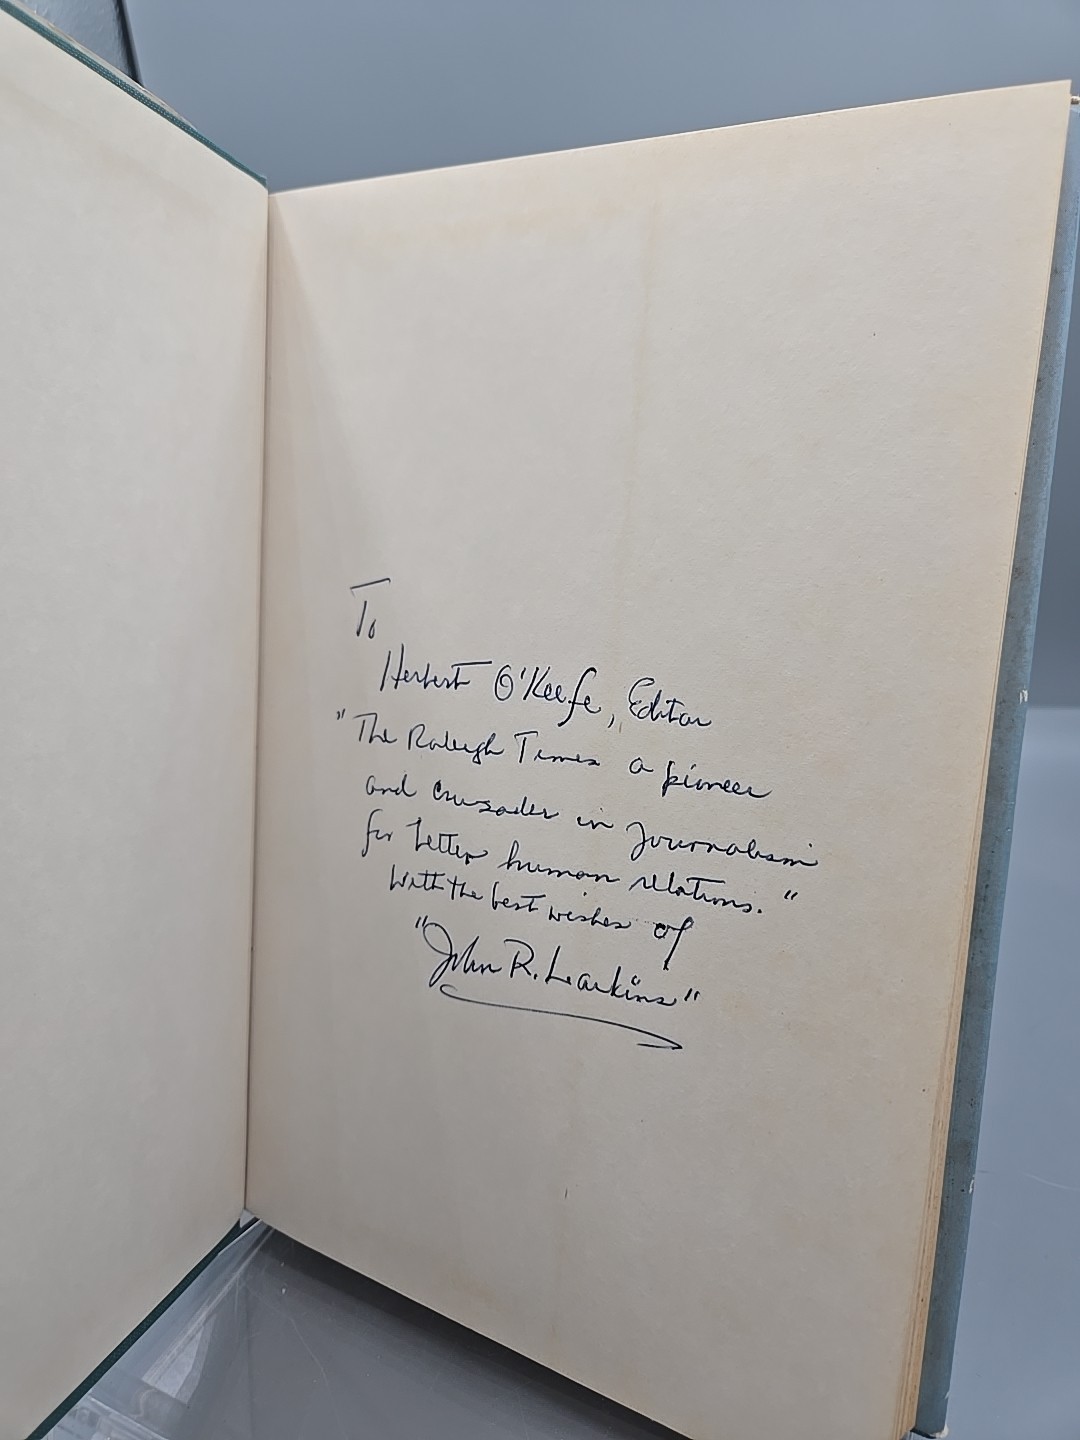 To
Herbert O'Keefe, Editor
"The Raleigh Times a pioneer
and crusader in journalism
for better human relations."
With the best wishes of
"John R. Larkins"